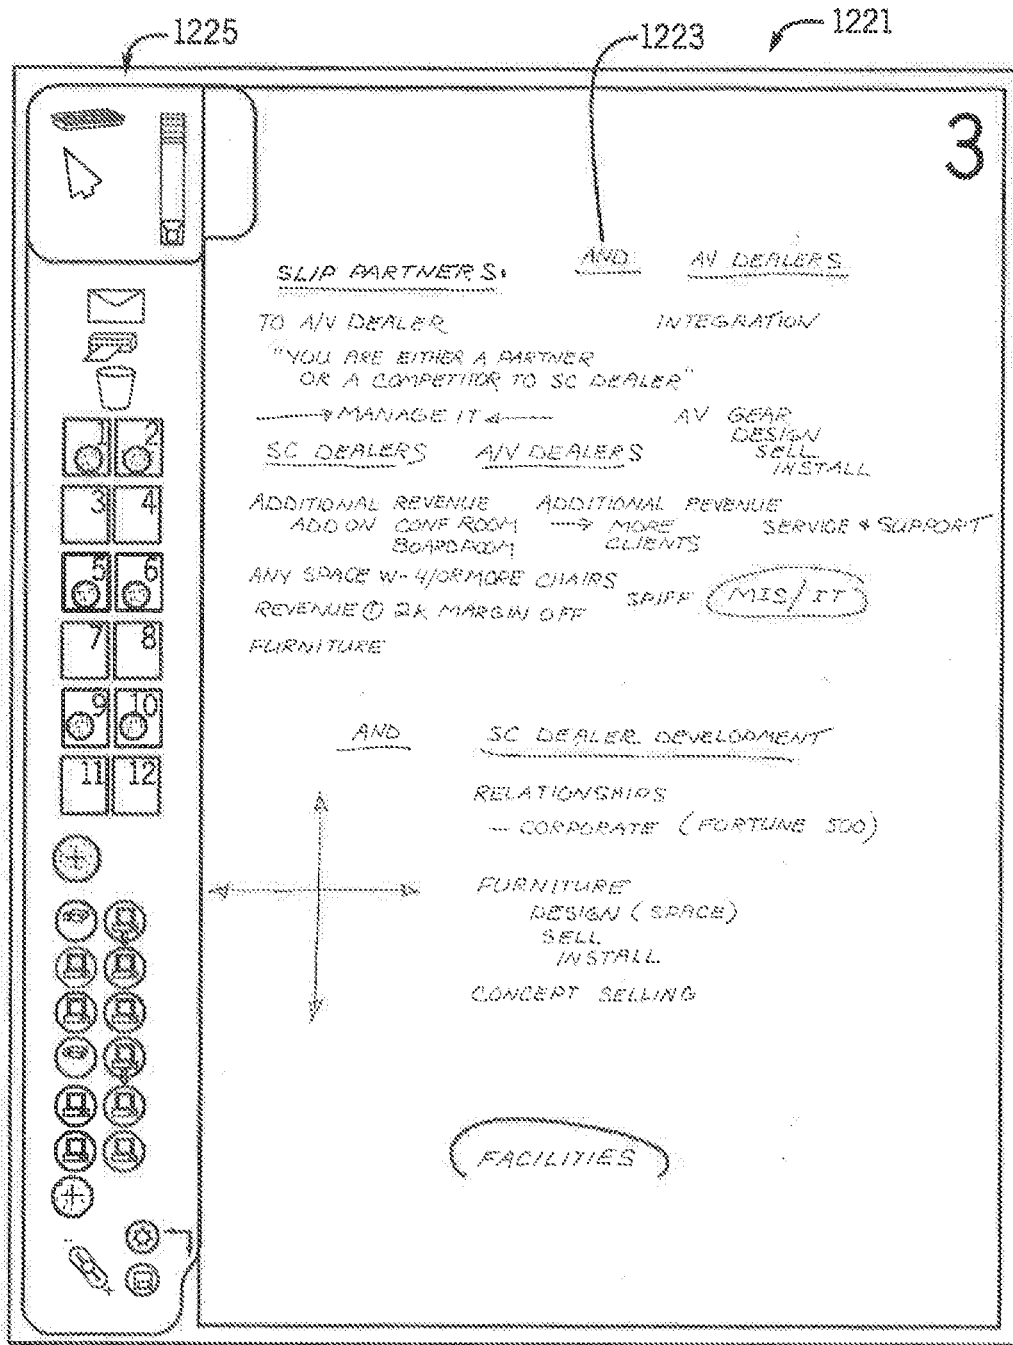 1225
1223
1221
3
AND
AV DEALERS
SLIP PARTNERS:
TO A/V DEALER
INTEGRATION
"YOU ARE EITHER A PARTNER
OR A COMPETITOR TO SC DEALER"
MANAGE IT
AV GEAR
DESIGN
SELL
INSTALL
SC DEALERS
A/V DEALERS
ADDITIONAL REVENUE
ADD ON CONF ROOM
BOARDROOM
ADDITIONAL REVENUE
MORE
CLIENTS
SERVICE & SUPPORT
ANY SPACE W- 4/OR MORE CHAIRS
SPIFF
MIS/IT
REVENUE ① 2K MARGIN OFF
FURNITURE
AND
SC DEALER DEVELOPMENT
RELATIONSHIPS
- CORPORATE (FORTUNE 500)
FURNITURE
DESIGN (SPACE)
SELL
INSTALL
CONCEPT SELLING
FACILITIES
1 2
3 4
5 6
7 8
9 10
11 12